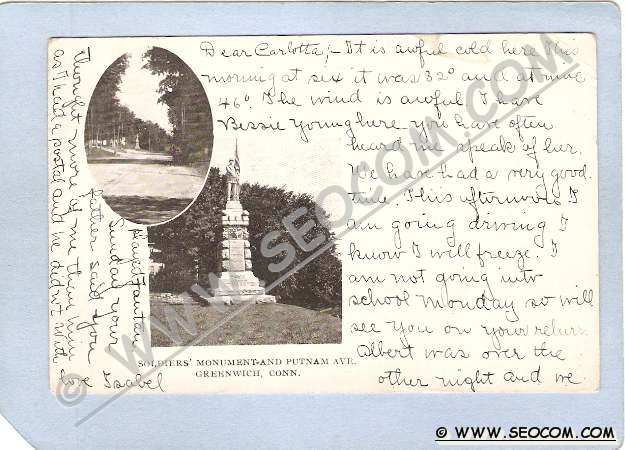 Dear Carlotta;- It is awful cold here this
morning at six it was 32° and at nine
46°. The wind is awful. I have
Bessie Young here you have often
heard me speak of her.
We have had a very good
time. This afternoon I
am going driving I
know I will freeze. I
am not going into
school Monday so will
see you on your return.
Albert was over the
other night and we
had Fun
Sunday your
father said you
thought more of me than him
as I had a postal and he didn't. With
love Isabel
SOLDIERS' MONUMENT AND PUTNAM AVE.
GREENWICH, CONN.
© WWW.SEOCOM.COM
© WWW.SEOCOM.COM
© WWW.SEOCOM.COM